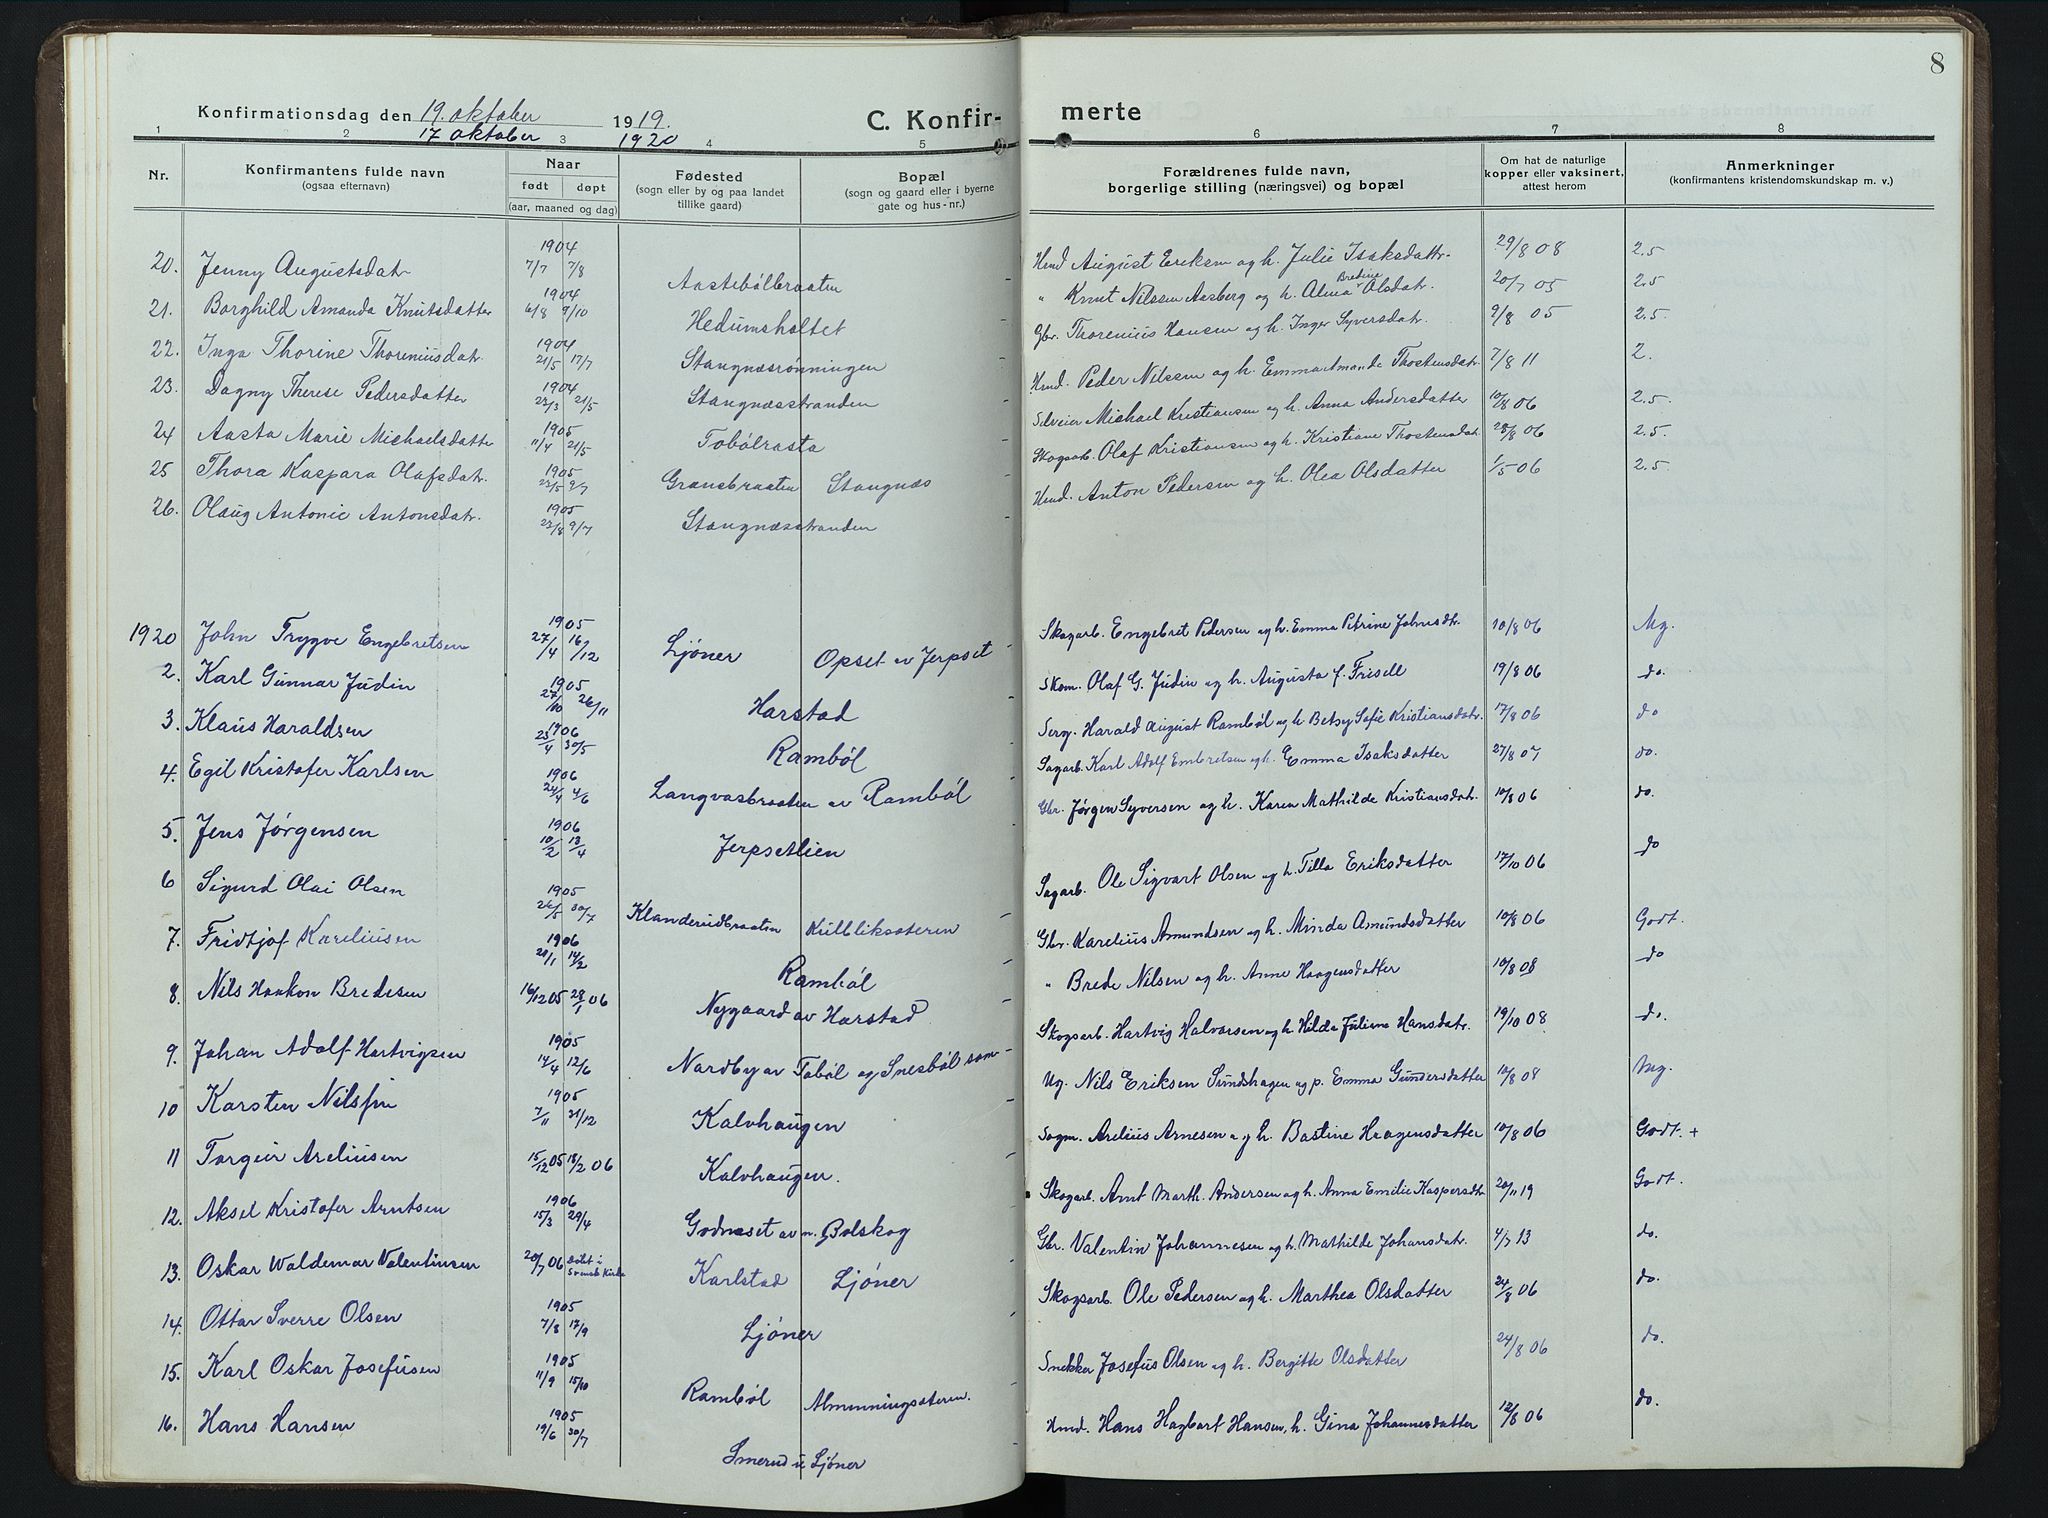 8
Konfirmationsdag den 19. oktober 1919. C. Konfir- merte
17 oktober 1920
1 2 3 4 5 6 7 8
Nr. Konfirmantens fulde navn (ogsaa efternavn) Naar født døpt (aar, maaned og dag) Fødested (sogn eller by og paa landet tillike gaard) Bopæl (sogn og gaard eller i byerne gate og hus-nr.) Forældrenes fulde navn, borgerlige stilling (næringsvei) og bopæl Om hat de naturlige kopper eller vaksinert, attest herom Anmerkninger (konfirmantens kristendomskundskap m. v.)
20. Jenny Augustsdatr 1904 7/7 7/8 Aastebölbraaten Hmd August Eriksen og h. Julie Isaksdattr. 29/8 08 2.5
21. Borghild Amanda Knutsdatter 1904 6/8 9/10 Hedumsholtet " Knut Nilssen Aasberg og h. Alma Bredine Olsdatr. 20/7 05 2.5
22. Inga Thorine Thoreniusdatr. 1904 21/5 17/7 Stangnæsrønningen Gbr. Thorenius Hansen og h. Inger Syversdatr. 9/8 05 2.5.
23. Dagny Therese Pedersdatter 1904 22/3 21/5 Stangnæsstranden Hmd. Peder Nilssen og h. Emma Amande Thostensdatr. 7/8 11 2.
24 Aasta Marie Michaelsdatter 1905 11/4 21/5 Tobölrasta Michael Kristiansen og h. Anna Andersdatter 10/8 06 2.5.
25 Thora Kaspara Olafsdatr. 1905 22/5 9/7 Gransbraaten Stangnæs Skogsarb. Olaf Kristiansen og h. Kristiane Thostensdatr. 28/8 06 2.5.
26. Olaug Antonie Antonsdatr. 1905 22/8 9/7 Stangnæsstranden Hmd. Anton Pedersen og h. Olea Olsdatter 1/5 06 2.5.
1920 John Trygve Engebretsen 1905 27/4 16/12 Ljöner Opset av Jerpset Skogarb. Engebret Pedersen og h. Emma Petrine Johnsdtr. 10/8 06 Mg.
2. Karl Gunnar Judin 1905 27/10 26/11 Harstad Skom. Olaf G. Judin og h. Augusta f. Frisell 19/8 06 do.
3. Klaus Haraldsen 1906 23/4 30/5 Ramböl Serg. Harald August Ramböl og h Betsy Sofie Kristiansdatr. 17/8 06 do
4. Egil Kristofer Karlsen 1906 24/4 4/6 Langvasbraaten av Ramböl Sagarb. Karl Adolf Embretsen og h. Emma Isaksdatter 27/8 07 do.
5. Jens Jørgensen 1906 10/2 13/4 Jerpsetlien Gbr. Jørgen Syversen og h. Karen Mathilde Kristiansdatr. 10/8 06 do.
6 Sigurd Olai Olsen 1905 26/5 30/7 Klanderudbraaten Kulbliksæteren Sagarb. Ole Sigvart Olsen og h. Tilla Eriksdatter 17/10 06 do
7. Fridtjof Kareliusen 1906 21/1 14/2 Ramböl Gbr. Karelius Amundsen og h. Minda Amundsdatter 10/8 06 Godt.
8. Nils Haakon Bredesen 16/12 05 28/1 06 Nygaard av Harstad " Brede Nilsen og h. Anne Haagensdatter 10/8 08 do
9. Johan Adolf Hartvigsen 1905 14/4 12/6 Nordby av Toböl og Snesböl som- Skogsarb. Hartvig Halvorsen og h Hilda Juliane Hansdatr. 19/10 08 do.
10 Karsten Nilsen 1905 7/11 21/12 Kalvhaugen Ug. Nils Eriksen Sundshagen og p. Emma Gundersdatter 10/8 08 Mg.
11 Torgeir Areliusen 15/12 05 18/2 06 Kalvhaugen. Sogm. Arelius Arnesen og h. Bastine Haagensdatter 10/8 06 Godt. +
12. Aksel Kristofer Arntsen 1906 15/3 29/4 Godnæset av n. Bolskog Skogarb. Arnt Marth. Andersen og h. Anna Emilie Kaspersdtr 20/11 19 Godt.
13. Oskar Waldemar Valentinsen 20/7 06 Döbt i Svensk Kirke Karlstad Ljöner Gbr. Valentin Johannesen og h. Mathilde Johansdatr. 4/7 13 do.
14. Ottar Sverre Olsen 1905 7/8 17/9 Ljöner Skogsarb. Ole Pedersen og h. Marthea Olsdatter 24/8 06 do.
15. Karl Oskar Josefusen 1905 11/9 15/10 Ramböl Almenningsæteren. Snekker Josefus Olsen og h. Bergitte Olsdatter 24/8 06 do.
16. Hans Hansen 1905 19/6 30/7 Smerud u Ljöner Hmd. Hans Hagbart Hansen, h. Gina Johannesdatter 12/8 06 do.